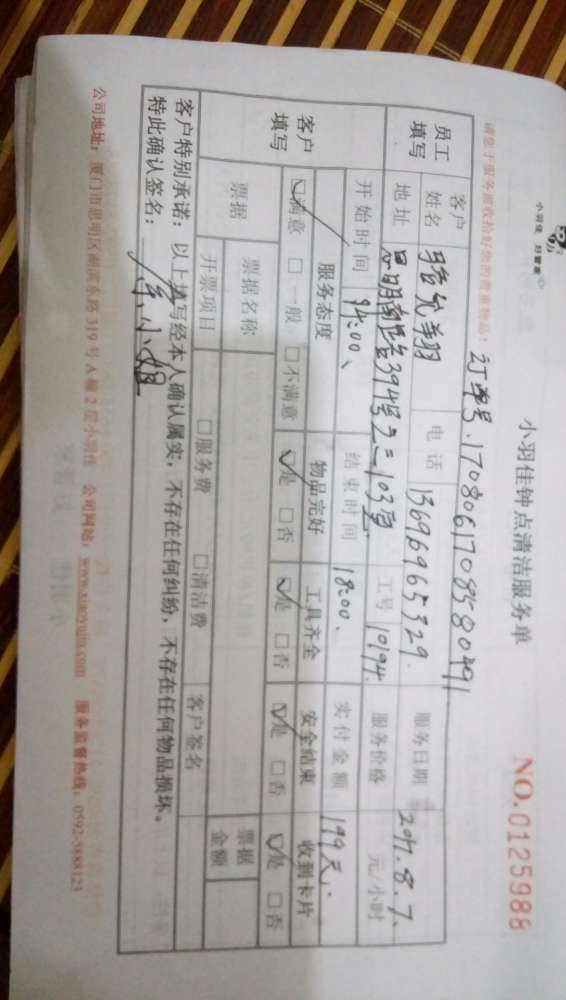 小羽佳 好管家
小羽佳钟点清洁服务单
NO.0125988
请您于服务前收拾好您的贵重物品!
订单号.170806170858049 1
员工填写
客户姓名
电话
13696965329.
服务日期
2017.8.7.
地址
思明南路394号之二103室
工号
10194
服务价格
元/小时
开始时间
14:00、
结束时间
18:00、
实付金额
199元.
客户填写
服务态度
物品完好
工具齐全
安全结束
收到卡片
☑满意 □一般 □不满意
☑是 □否
☑是 □否
☑是 □否
☑是 □否
票据
票据名称
票据金额
开票项目
□服务费 □清洁费
客户签名
客户特别承诺: 以上填写经本人确认属实,不存在任何纠纷,不存在任何物品损坏。
特此确认签名:
小姐
公司地址: 厦门市思明区湖滨东路319号A幢2层小羽佳 公司网站: www.xiaoyujia.com 服务监督热线: 0592-3888123